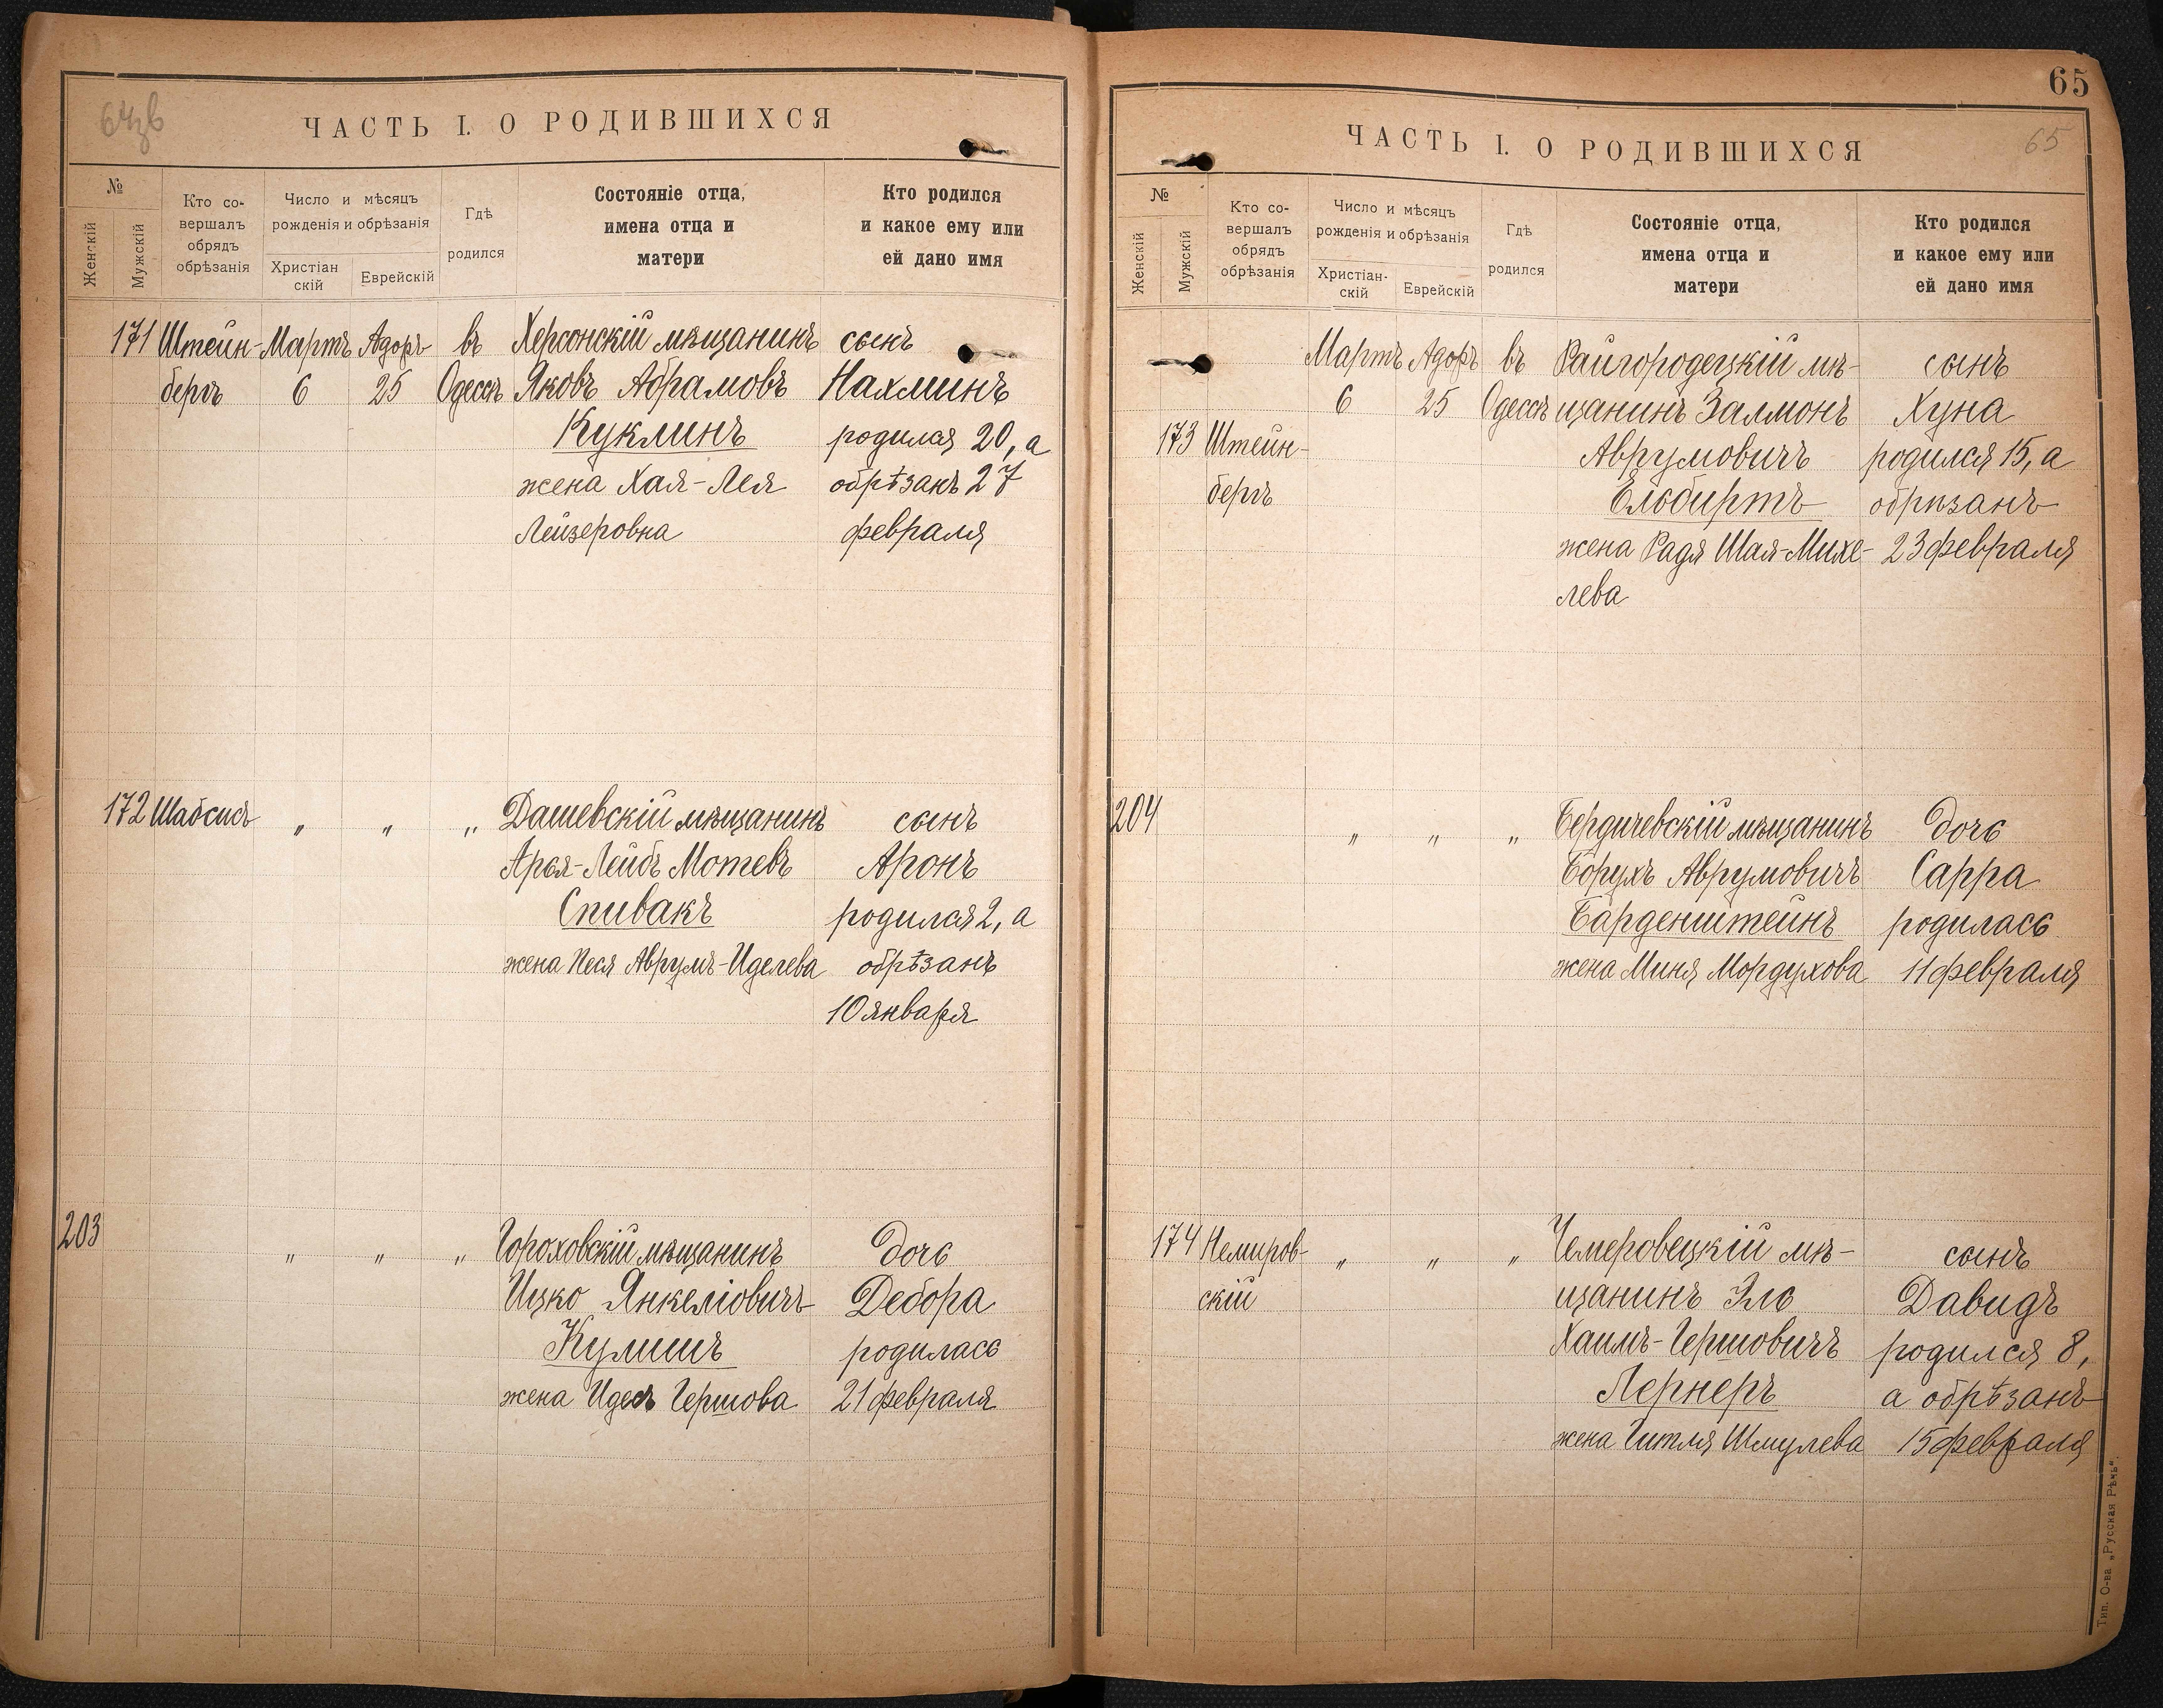 64зв
ЧАСТЬ I. О РОДИВШИХСЯ
№
Женскій
Мужскій
Кто со-
вершалъ
обрядъ
обрѣзанія
Число и мѣсяцъ
рожденія и обрѣзанія
Христіан
скій
Еврейскій
Гдѣ
родился
Состояніе отца,
имена отца и
матери
Кто родился
и какое ему или
ей дано имя
171 Штейн- Мартъ Адоръ въ Херсонскій мѣщанинъ сынъ
бергъ 6 25 Одессѣ Яковъ Абрамовъ Нахминъ
Куклинъ родился 20, а
жена Хая-Лея обрѣзанъ 27
Лейзеровна февраля
172 Шабсисъ " " " Дашевскій мѣщанинъ сынъ
Арья-Лейбъ Мотевъ Аронъ
Спивакъ родился 2, а
жена Песя Аврумъ-Иделева обрѣзанъ
10 января
203 " " " Гороховскій мѣщанинъ дочь
Ицко Янкеліовичъ Дебора
Кулишъ родилась
жена Идесъ Гершова 21 февраля
65
65
ЧАСТЬ I. О РОДИВШИХСЯ
№
Женскій
Мужскій
Кто со-
вершалъ
обрядъ
обрѣзанія
Число и мѣсяцъ
рожденія и обрѣзанія
Христіан-
скій
Еврейскій
Гдѣ
родился
Состояніе отца,
имена отца и
матери
Кто родился
и какое ему или
ей дано имя
Мартъ Адоръ въ Райгородецкій мѣ- сынъ
6 25 Одессѣ щанинъ Залмонъ Хуна
173 Штейн- Аврумовичъ родился 15, а
бергъ Ельбиртъ обрѣзанъ
жена Радя Шая-Михе- 23 февраля
лева
204 " " " Бердичевскій мѣщанинъ дочь
Борухъ Аврумовичъ Сарра
Барденштейнъ родилась
жена Миня Мордухова 11 февраля
174 Немиров- " " " Чемеровецкій мѣ- сынъ
скій щанинъ Эль Давидъ
Хаимъ-Гершовичъ родился 8,
Лернеръ а обрѣзанъ
жена Гитля Шмулева 15 февраля
Тип. О-ва „Русская Рѣчь".